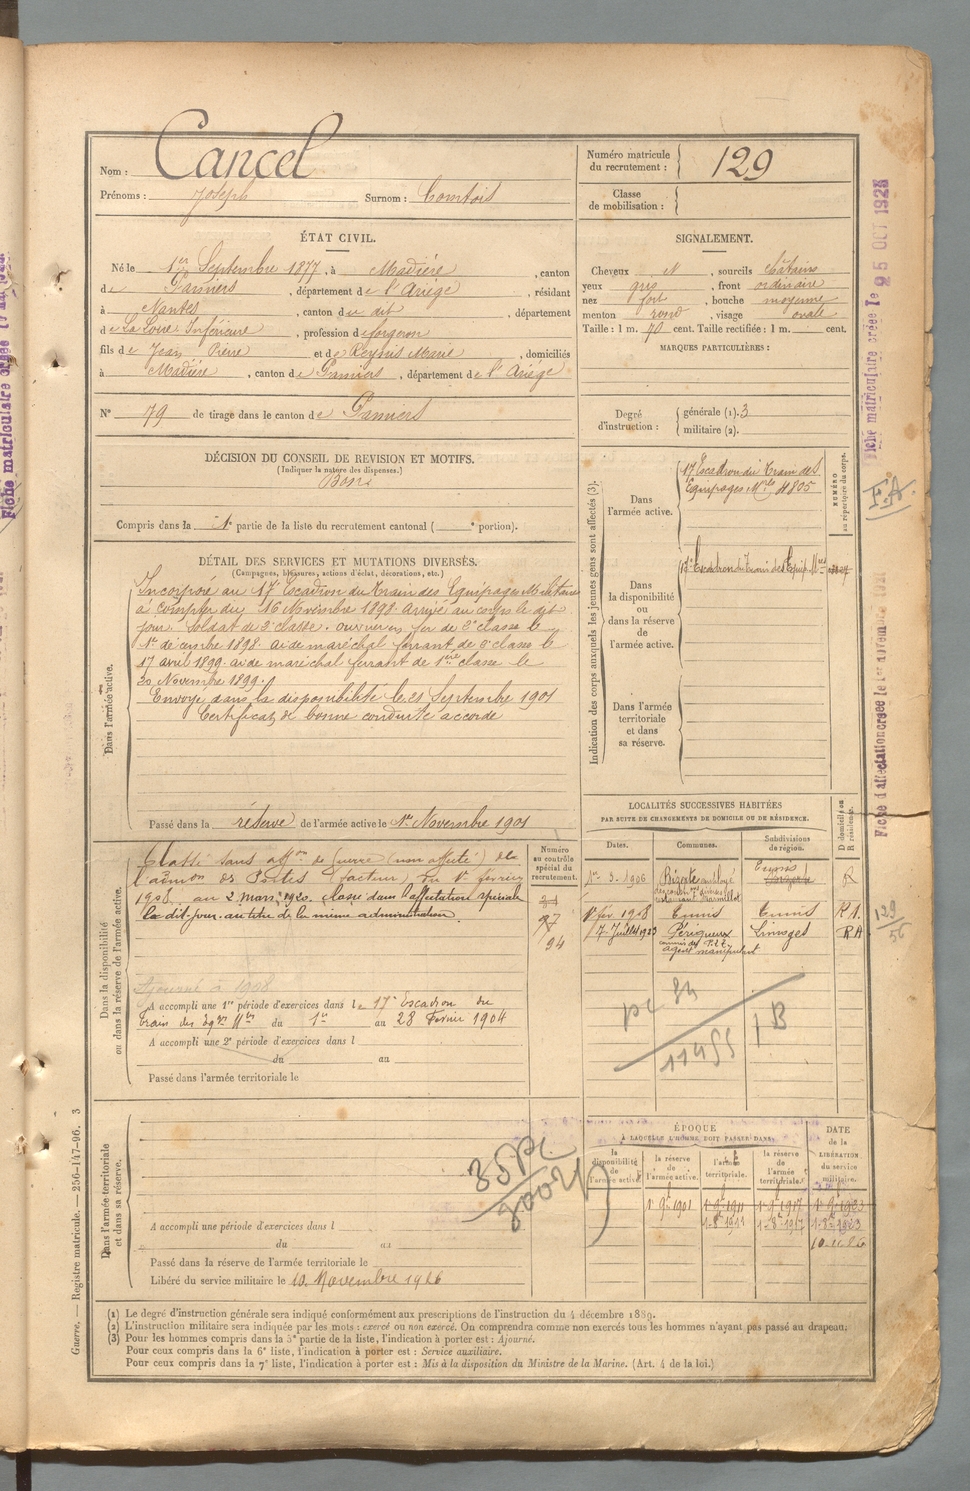 Nom : Cancel
Prénoms : Joseph Surnom : Comtois
Numéro matricule du recrutement : 129
Classe de mobilisation :
ÉTAT CIVIL.
Né le 1er Septembre 1877, à Madière, canton
de Pamiers, département de l'Ariège, résidant
à Nantes, canton du dit, département
de La Loire Inférieure, profession de forgeron
fils de Jean Pierre et de Reynis Marie, domiciliés
à Madière, canton de Pamiers, département de l'Ariège
N° 79 de tirage dans le canton de Pamiers
SIGNALEMENT.
Cheveux N, sourcils châtains
yeux gris, front ordinaire
nez fort, bouche moyenne
menton rond, visage ovale
Taille : 1 m. 70 cent. Taille rectifiée : 1 m. cent.
MARQUES PARTICULIÈRES :
Degré d'instruction : générale (1). 3
militaire (2).
DÉCISION DU CONSEIL DE REVISION ET MOTIFS.
(Indiquer la nature des dispenses.)
Bon
Compris dans la 1e partie de la liste du recrutement cantonal ( e portion).
DÉTAIL DES SERVICES ET MUTATIONS DIVERSES.
(Campagnes, blessures, actions d'éclat, décorations, etc.)
Dans l'armée active.
Incorporé au 17e Escadron du Train des Equipages Militaires
à compter du 16 Novembre 1898. Arrivé au corps le dit
jour soldat de 2e classe. ouvrier en fer de 2e classe le
1er décembre 1898. aide maréchal ferrant de 2e classe le
17 avril 1899. aide maréchal ferrant de 1ère classe le
20 Novembre 1899.
Envoyé dans la disponibilité le 21 Septembre 1901
Certificat de bonne conduite accordé
Passé dans la réserve de l'armée active le 1er Novembre 1901
Indication des corps auxquels les jeunes gens sont affectés (3).
NUMÉRO au répertoire du corps.
Dans l'armée active.
17e Escadron du Train des
Equipages Mres 4805
Dans la disponibilité ou dans la réserve de l'armée active.
Escadron du Train des Equip. Mres
Dans l'armée territoriale et dans sa réserve.
Dans la disponibilité ou dans la réserve de l'armée active.
Classé sans affon de Guerre (non affecté) de
l'admon des Postes (facteur) du 1er février
1908. au 2 mars 1920. classé dans l'affectation spéciale
le dit jour au titre de la même administration.
Ajourné à 1908
A accompli une 1re période d'exercices dans le 17e Escadron du
Train des Eqges Mres du 1er au 28 Février 1904
A accompli une 2e période d'exercices dans l
du au
Passé dans l'armée territoriale le
Numéro au contrôle spécial du recrutement.
94
LOCALITÉS SUCCESSIVES HABITÉES
PAR SUITE DE CHANGEMENTS DE DOMICILE OU DE RÉSIDENCE.
Dates. Communes. Subdivisions de région. D domicile ou R résidence.
1er 3. 1906 Bizerte Tunis R
1er fév. 1908 Tunis Tunis R A.
7 Juillet 1923 Périgueux Limoges R A
commis des P.T.T.
agent manipulant
pc 84
11455
1 B
129
56
F.A.
Dans l'armée territoriale et dans sa réserve.
A accompli une période d'exercices dans l
du au
Passé dans la réserve de l'armée territoriale le
Libéré du service militaire le 10 Novembre 1926
ÉPOQUE
A LAQUELLE L'HOMME DOIT PASSER DANS
la disponibilité de l'armée active.
la réserve de l'armée active.
l'armée territoriale.
la réserve de l'armée territoriale.
DATE de la LIBÉRATION du service militaire.
1er 9bre 1901 1er 9bre 1911 1er 9bre 1917 1er 9bre 1923
1-8bre 1911 1-8bre 1917 1-8bre 1923
10-11-26
(1) Le degré d'instruction générale sera indiqué conformément aux prescriptions de l'instruction du 4 décembre 1889.
(2) L'instruction militaire sera indiquée par les mots : exercé ou non exercé. On comprendra comme non exercés tous les hommes n'ayant pas passé au drapeau.
(3) Pour les hommes compris dans la 5e partie de la liste, l'indication à porter est : Ajourné.
Pour ceux compris dans la 6e liste, l'indication à porter est : Service auxiliaire.
Pour ceux compris dans la 7e liste, l'indication à porter est : Mis à la disposition du Ministre de la Marine. (Art. 4 de la loi.)
Guerre. — Registre matricule. — 256-147-96. 3
Fiche matriculaire créée le 25 OCT 1928
Fiche d'affectation créée le 1er novembre
Fiche matriculaire créée le